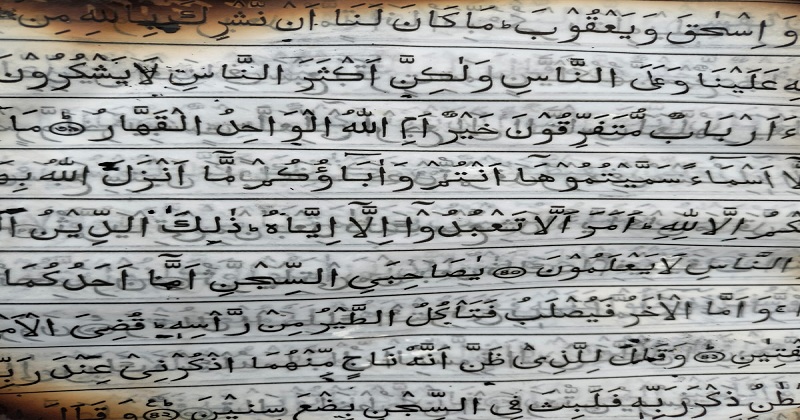 وَ اِسْحٰقَ وَيَعْقُوْبَ ؕ مَا كَانَ لَنَا اَنْ نُّشْرِكَ بِاللّٰهِ مِنْ
عَلَيْنَا وَعَلَى النَّاسِ وَلٰكِنَّ اَكْثَرَ النَّاسِ لَا يَشْكُرُوْنَ
ءَاَرْبَابٌ مُّتَفَرِّقُوْنَ خَيْرٌ اَمِ اللّٰهُ الْوَاحِدُ الْقَهَّارُ ؕ مَا
اَسْمَآءً سَمَّيْتُمُوْهَا اَنْتُمْ وَاٰبَآؤُكُمْ مَّا اَنْزَلَ اللّٰهُ
اِلَّا لِلّٰهِ ؕ اَمَرَ اَلَّا تَعْبُدُوْا اِلَّا اِيَّاهُ ؕ ذٰلِكَ الدِّيْنُ
النَّاسِ لَا يَعْلَمُوْنَ يٰصَاحِبَيِ السِّجْنِ اَمَّا اَحَدُكُمَا
وَ اَمَّا الْاٰخَرُ فَيُصْلَبُ فَتَاْكُلُ الطَّيْرُ مِنْ رَّاْسِهٖ ؕ قُضِيَ
وَقَالَ لِلَّذِيْ ظَنَّ اَنَّهٗ نَاجٍ مِّنْهُمَا اذْكُرْنِيْ عِنْدَ
ذِكْرَ رَبِّهٖ فَلَبِثَ فِي السِّجْنِ بِضْعَ سِنِيْنَ وَ قَالَ